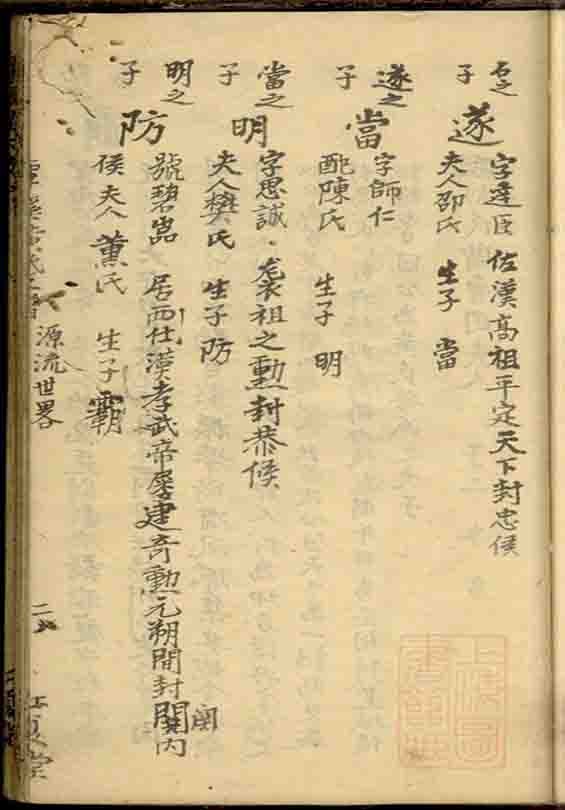 石之子
遂
字達臣 佐漢高祖平定天下封忠侯
夫人邵氏 生子 當
遂之子
當
字師仁
配陳氏 生子 明
當之子
明
字思誠 袭祖之勳封恭侯
夫人樊氏 生子防
明之子
防
號碧嵓 居西仕漢孝武帝屢建奇勳元朔間封関内
侯夫人薫氏 生子霸
源流世畧
二
上
圖
書館